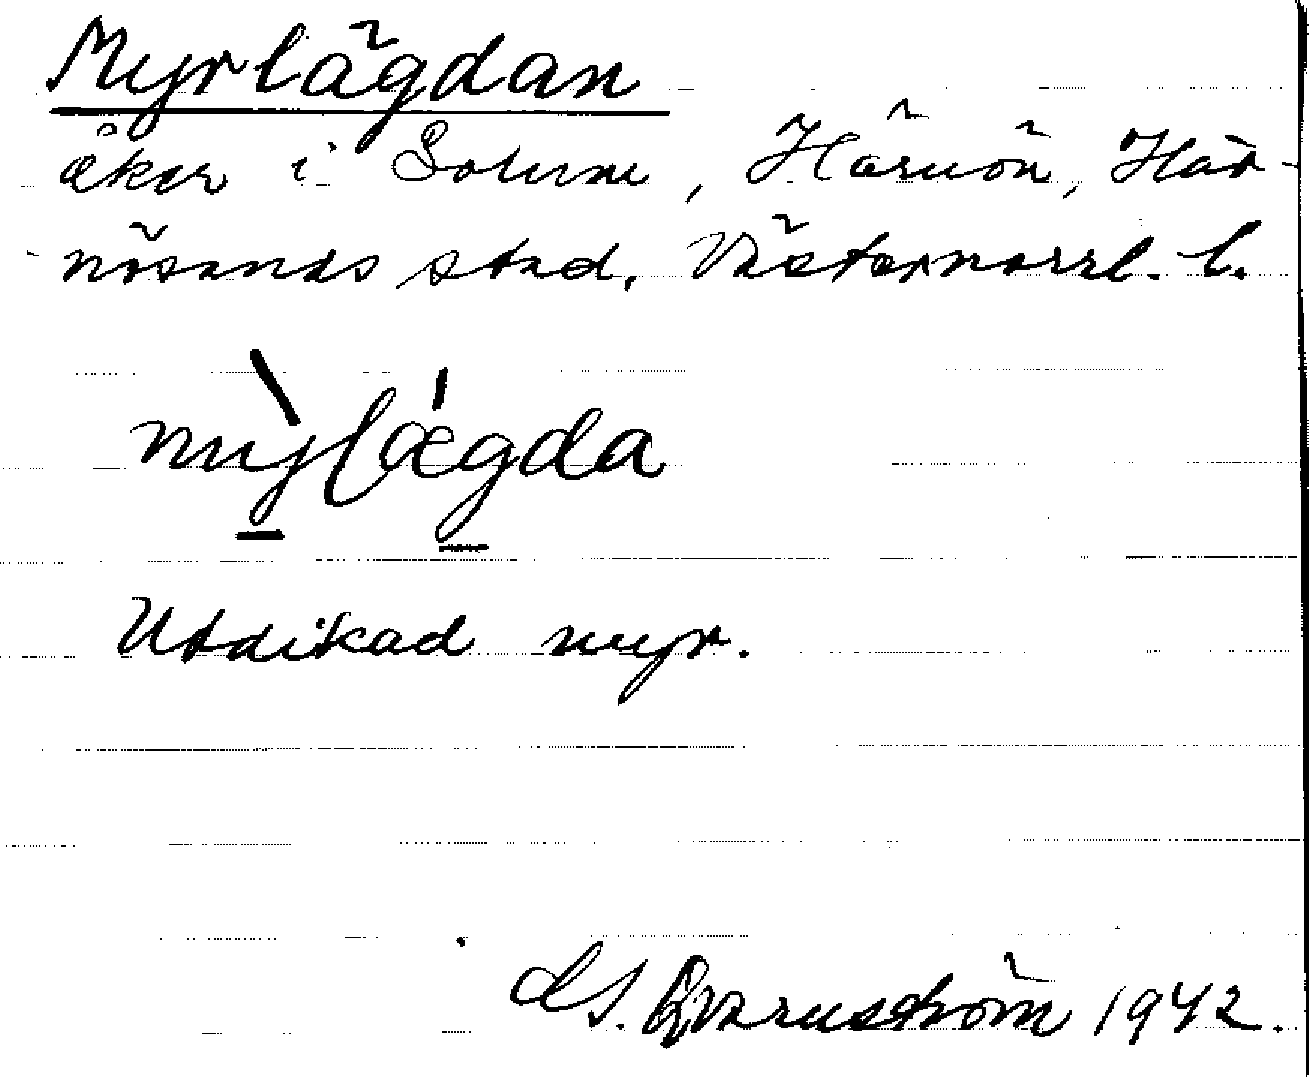 Myrlägdan
åker i Solum, Härnön, Här-
nösands stad, Västernorrl. l.
mỳlǽgda
Utdikad myr.
Qvarnström 1942.